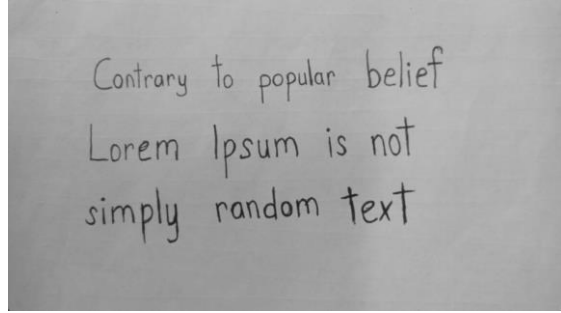 Contrary to popular belief
Lorem Ipsum is not
simply random text